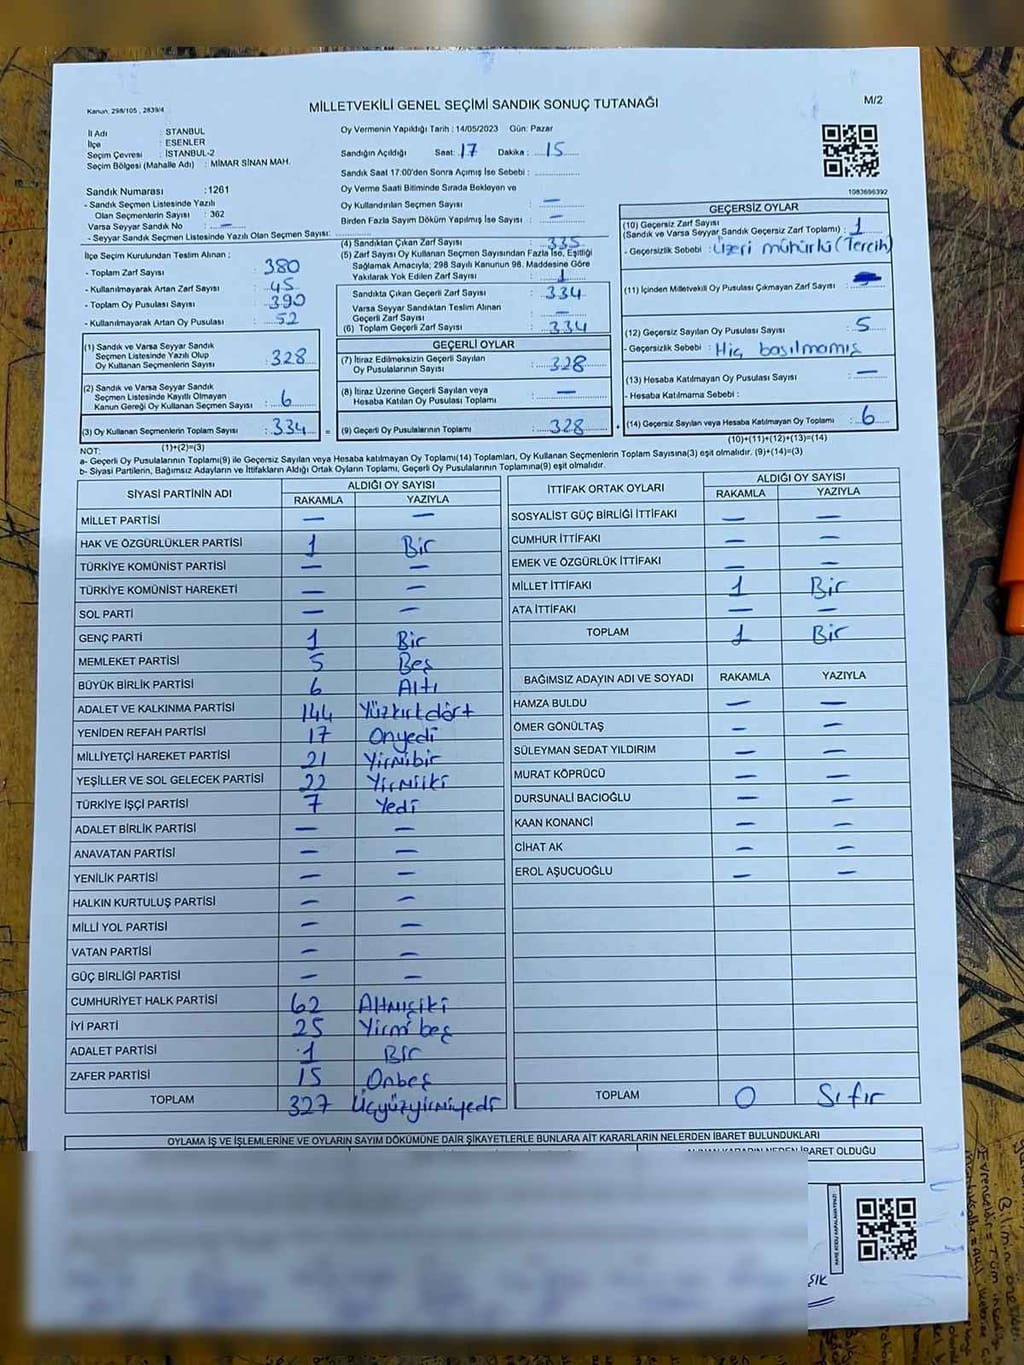 Kanun: 298/105 , 2839/4
MİLLETVEKİLİ GENEL SEÇİMİ SANDIK SONUÇ TUTANAĞI
M/2
İl Adı : STANBUL
İlçe : ESENLER
Seçim Çevresi : İSTANBUL-2
Seçim Bölgesi (Mahalle Adı) : MİMAR SİNAN MAH.
Sandık Numarası : 1261
- Sandık Seçmen Listesinde Yazılı
Olan Seçmenlerin Sayısı : 362
Varsa Seyyar Sandık No : —
- Seyyar Sandık Seçmen Listesinde Yazılı Olan Seçmen Sayısı:
Oy Vermenin Yapıldığı Tarih : 14/05/2023 Gün: Pazar
Sandığın Açıldığı Saat: 17 Dakika : 15
Sandık Saat 17:00'den Sonra Açımış İse Sebebi :
Oy Verme Saati Bitiminde Sırada Bekleyen ve
Oy Kullandırılan Seçmen Sayısı : —
Birden Fazla Sayım Döküm Yapılmış İse Sayısı : —
1083696392
İlçe Seçim Kurulundan Teslim Alınan ;
- Toplam Zarf Sayısı : 380
- Kullanılmayarak Artan Zarf Sayısı : 45
- Toplam Oy Pusulası Sayısı : 390
- Kullanılmayarak Artan Oy Pusulası : 52
(1) Sandık ve Varsa Seyyar Sandık
Seçmen Listesinde Yazılı Olup
Oy Kullanan Seçmenlerin Sayısı : 328
(2) Sandık ve Varsa Seyyar Sandık
Seçmen Listesinde Kayıtlı Olmayan
Kanun Gereği Oy Kullanan Seçmen Sayısı : 6
(3) Oy Kullanan Seçmenlerin Toplam Sayısı : 334 =
(1)+(2)=(3)
(4) Sandıktan Çıkan Zarf Sayısı : 335
(5) Zarf Sayısı Oy Kullanan Seçmen Sayısından Fazla İse, Eşitliği
Sağlamak Amacıyla; 298 Sayılı Kanunun 98. Maddesine Göre
Yakılarak Yok Edilen Zarf Sayısı : 1
Sandıkta Çıkan Geçerli Zarf Sayısı : 334
Varsa Seyyar Sandıktan Teslim Alınan
Geçerli Zarf Sayısı : —
(6) Toplam Geçerli Zarf Sayısı : 334
GEÇERLİ OYLAR
(7) İtiraz Edilmeksizin Geçerli Sayılan
Oy Pusulalarının Sayısı : 328
(8) İtiraz Üzerine Geçerli Sayılan veya
Hesaba Katılan Oy Pusulası Toplamı : —
(9) Geçerli Oy Pusulalarının Toplamı : 328
GEÇERSİZ OYLAR
(10) Geçersiz Zarf Sayısı : 1
(Sandık ve Varsa Seyyar Sandık Geçersiz Zarf Toplamı)
- Geçersizlik Sebebi : Üzeri mühürlü (Tercih)
(11) İçinden Milletvekili Oy Pusulası Çıkmayan Zarf Sayısı :
(12) Geçersiz Sayılan Oy Pusulası Sayısı : 5
- Geçersizlik Sebebi : Hiç basılmamış
(13) Hesaba Katılmayan Oy Pusulası Sayısı : —
- Hesaba Katılmama Sebebi :
(14) Geçersiz Sayılan veya Hesaba Katılmayan Oy Toplamı : 6
(10)+(11)+(12)+(13)=(14)
NOT:
a- Geçerli Oy Pusulalarının Toplamı(9) ile Geçersiz Sayılan veya Hesaba katılmayan Oy Toplamı(14) Toplamları, Oy Kullanan Seçmenlerin Toplam Sayısına(3) eşit olmalıdır. (9)+(14)=(3)
b- Siyasi Partilerin, Bağımsız Adayların ve İttifakların Aldığı Ortak Oyların Toplamı, Geçerli Oy Pusulalarının Toplamına(9) eşit olmalıdır.
SİYASİ PARTİNİN ADI ALDIĞI OY SAYISI
RAKAMLA YAZIYLA
MİLLET PARTİSİ — —
HAK VE ÖZGÜRLÜKLER PARTİSİ 1 Bir
TÜRKİYE KOMÜNİST PARTİSİ — —
TÜRKİYE KOMÜNİST HAREKETİ — —
SOL PARTİ — —
GENÇ PARTİ 1 Bir
MEMLEKET PARTİSİ 5 Beş
BÜYÜK BİRLİK PARTİSİ 6 Altı
ADALET VE KALKINMA PARTİSİ 144 Yüzkırkdört
YENİDEN REFAH PARTİSİ 17 Onyedi
MİLLİYETÇİ HAREKET PARTİSİ 21 Yirmibir
YEŞİLLER VE SOL GELECEK PARTİSİ 22 Yirmiiki
TÜRKİYE İŞÇİ PARTİSİ 7 Yedi
ADALET BİRLİK PARTİSİ — —
ANAVATAN PARTİSİ — —
YENİLİK PARTİSİ — —
HALKIN KURTULUŞ PARTİSİ — —
MİLLİ YOL PARTİSİ — —
VATAN PARTİSİ — —
GÜÇ BİRLİĞİ PARTİSİ — —
CUMHURİYET HALK PARTİSİ 62 Altmışiki
İYİ PARTİ 25 Yirmi beş
ADALET PARTİSİ 1 Bir
ZAFER PARTİSİ 15 Onbeş
TOPLAM 327 Üçyüzyirmiyedi
İTTİFAK ORTAK OYLARI ALDIĞI OY SAYISI
RAKAMLA YAZIYLA
SOSYALİST GÜÇ BİRLİĞİ İTTİFAKI — —
CUMHUR İTTİFAKI — —
EMEK VE ÖZGÜRLÜK İTTİFAKI — —
MİLLET İTTİFAKI 1 Bir
ATA İTTİFAKI — —
TOPLAM 1 Bir
BAĞIMSIZ ADAYIN ADI VE SOYADI RAKAMLA YAZIYLA
HAMZA BULDU — —
ÖMER GÖNÜLTAŞ — —
SÜLEYMAN SEDAT YILDIRIM — —
MURAT KÖPRÜCÜ — —
DURSUNALİ BACIOĞLU — —
KAAN KONANCİ — —
CİHAT AK — —
EROL AŞUCUOĞLU — —
TOPLAM 0 Sıfır
OYLAMA İŞ VE İŞLEMLERİNE VE OYLARIN SAYIM DÖKÜMÜNE DAİR ŞİKAYETLERLE BUNLARA AİT KARARLARIN NELERDEN İBARET BULUNDUKLARI
ALINAN KARARIN NEDEN İBARET OLDUĞU